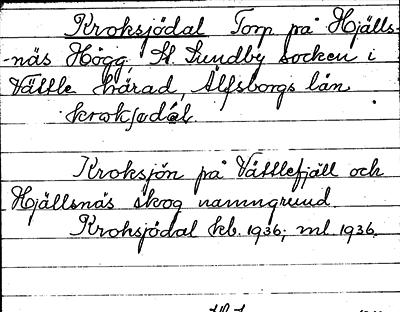 Kroksjödal Torp på Hjälls-
-näs Högg, St. Lundby socken i
Vättle härad, Älfsborgs län.
Kroksjön på Vättlefjäll och
Hjällsnäs skog namngrund.
Kroksjödal kb. 1936; ml 1936.